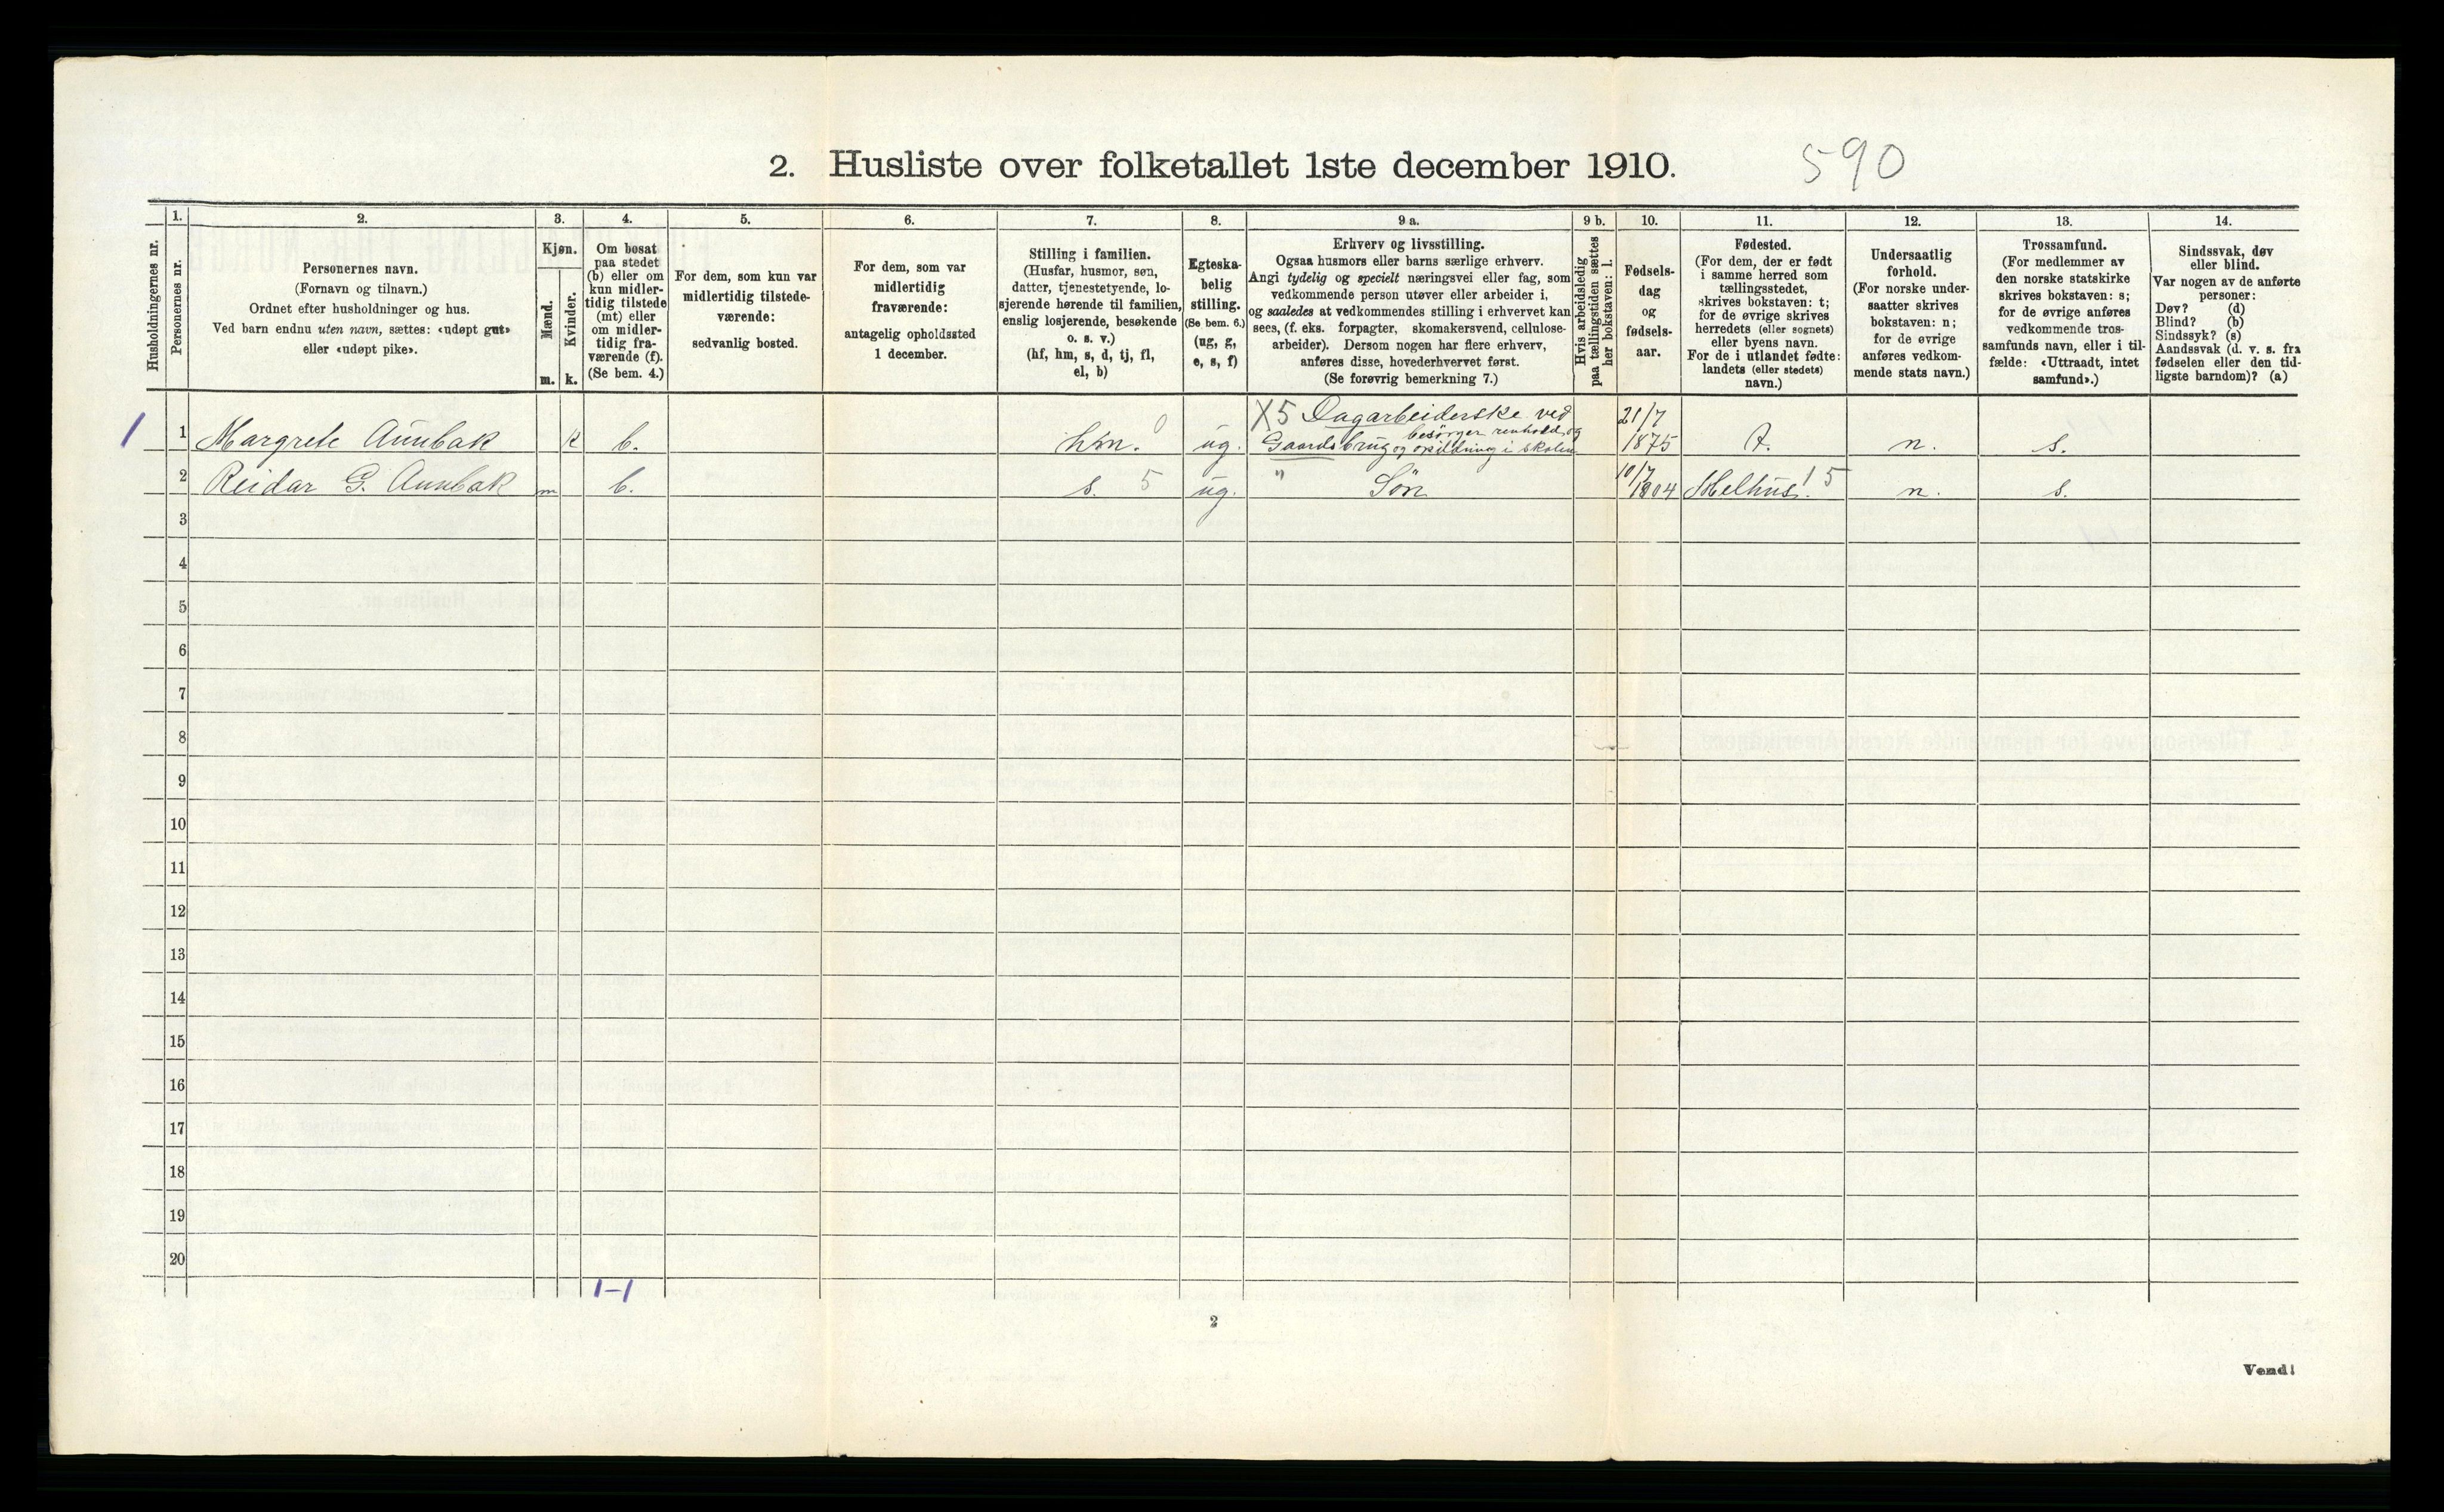 2. Husliste over folketallet 1ste december 1910.
590
Husholdningernes nr.
1.
Personernes nr.
2.
Personernes navn.
(Fornavn og tilnavn.)
Ordnet efter husholdninger og hus.
Ved barn endnu uten navn, sættes: «udøpt gut»
eller «udøpt pike».
3.
Kjøn.
Mænd.
Kvinder.
m.
k.
4.
Om bosat
paa stedet
(b) eller om
kun midler-
tidig tilstede
(mt) eller
om midler-
tidig fra-
værende (f).
(Se bem. 4.)
5.
For dem, som kun var
midlertidig tilstede-
værende:
sedvanlig bosted.
6.
For dem, som var
midlertidig
fraværende:
antagelig opholdssted
1 december.
7.
Stilling i familien.
(Husfar, husmor, søn,
datter, tjenestetyende, lo-
sjerende hørende til familien,
enslig losjerende, besøkende
o. s. v.)
(hf, hm, s, d, tj, fl,
el, b)
8.
Egteska-
belig
stilling.
(Se bem. 6.)
(ug, g,
e, s, f)
9 a.
Erhverv og livsstilling.
Ogsaa husmors eller barns særlige erhverv.
Angi tydelig og specielt næringsvei eller fag, som
vedkommende person utøver eller arbeider i,
og saaledes at vedkommendes stilling i erhvervet kan
sees, (f. eks. forpagter, skomakersvend, cellulose-
arbeider). Dersom nogen har flere erhverv,
anføres disse, hovederhvervet først.
(Se forøvrig bemerkning 7.)
9 b.
Hvis arbeidsledig
paa tællingstiden sættes
her bokstaven: l.
10.
Fødsels-
dag
og
fødsels-
aar.
11.
Fødested.
(For dem, der er født
i samme herred som
tællingsstedet,
skrives bokstaven: t;
for de øvrige skrives
herredets (eller sognets)
eller byens navn.
For de i utlandet fødte:
landets (eller stedets)
navn.)
12.
Undersaatlig
forhold.
(For norske under-
saatter skrives
bokstaven: n;
for de øvrige
anføres vedkom-
mende stats navn.)
13.
Trossamfund.
(For medlemmer av
den norske statskirke
skrives bokstaven: s;
for de øvrige anføres
vedkommende tros-
samfunds navn, eller i til-
fælde: «Uttraadt, intet
samfund».)
14.
Sindssvak, døv
eller blind.
Var nogen av de anførte
personer:
Døv? (d)
Blind? (b)
Sindssyk? (s)
Aandssvak (d. v. s. fra
fødselen eller den tid-
ligste barndom)? (a)
1 1 Margrete Aunbak k b. hm. 0 ug. X5 Dagarbeiderske ved
besörger renhold og
Gaardsbrug og opildning i skolen
21/7
1875 t. n. s.
2 Reidar G. Aunbak m b. s. 5 ug. " Sön 10/7
1904 Melhus. 15 n. s.
3
4
5
6
7
8
9
10
11
12
13
14
15
16
17
18
19
20
1-1
2
Vend!